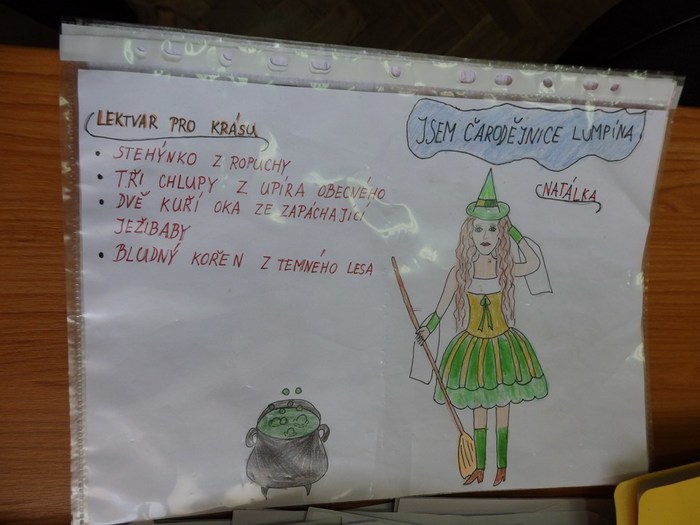 LEKTVAR PRO KRÁSU
• STEHÝNKO Z ROPUCHY
• TŘI CHLUPY Z UPÍRA OBECNÉHO
• DVĚ KUŘÍ OKA ZE ZAPÁCHAJÍCÍ
JEŽIBABY
• BLUDNÝ KOŘEN Z TEMNÉHO LESA
JSEM ČARODĚJNICE LUMPÍNA
NATÁLKA